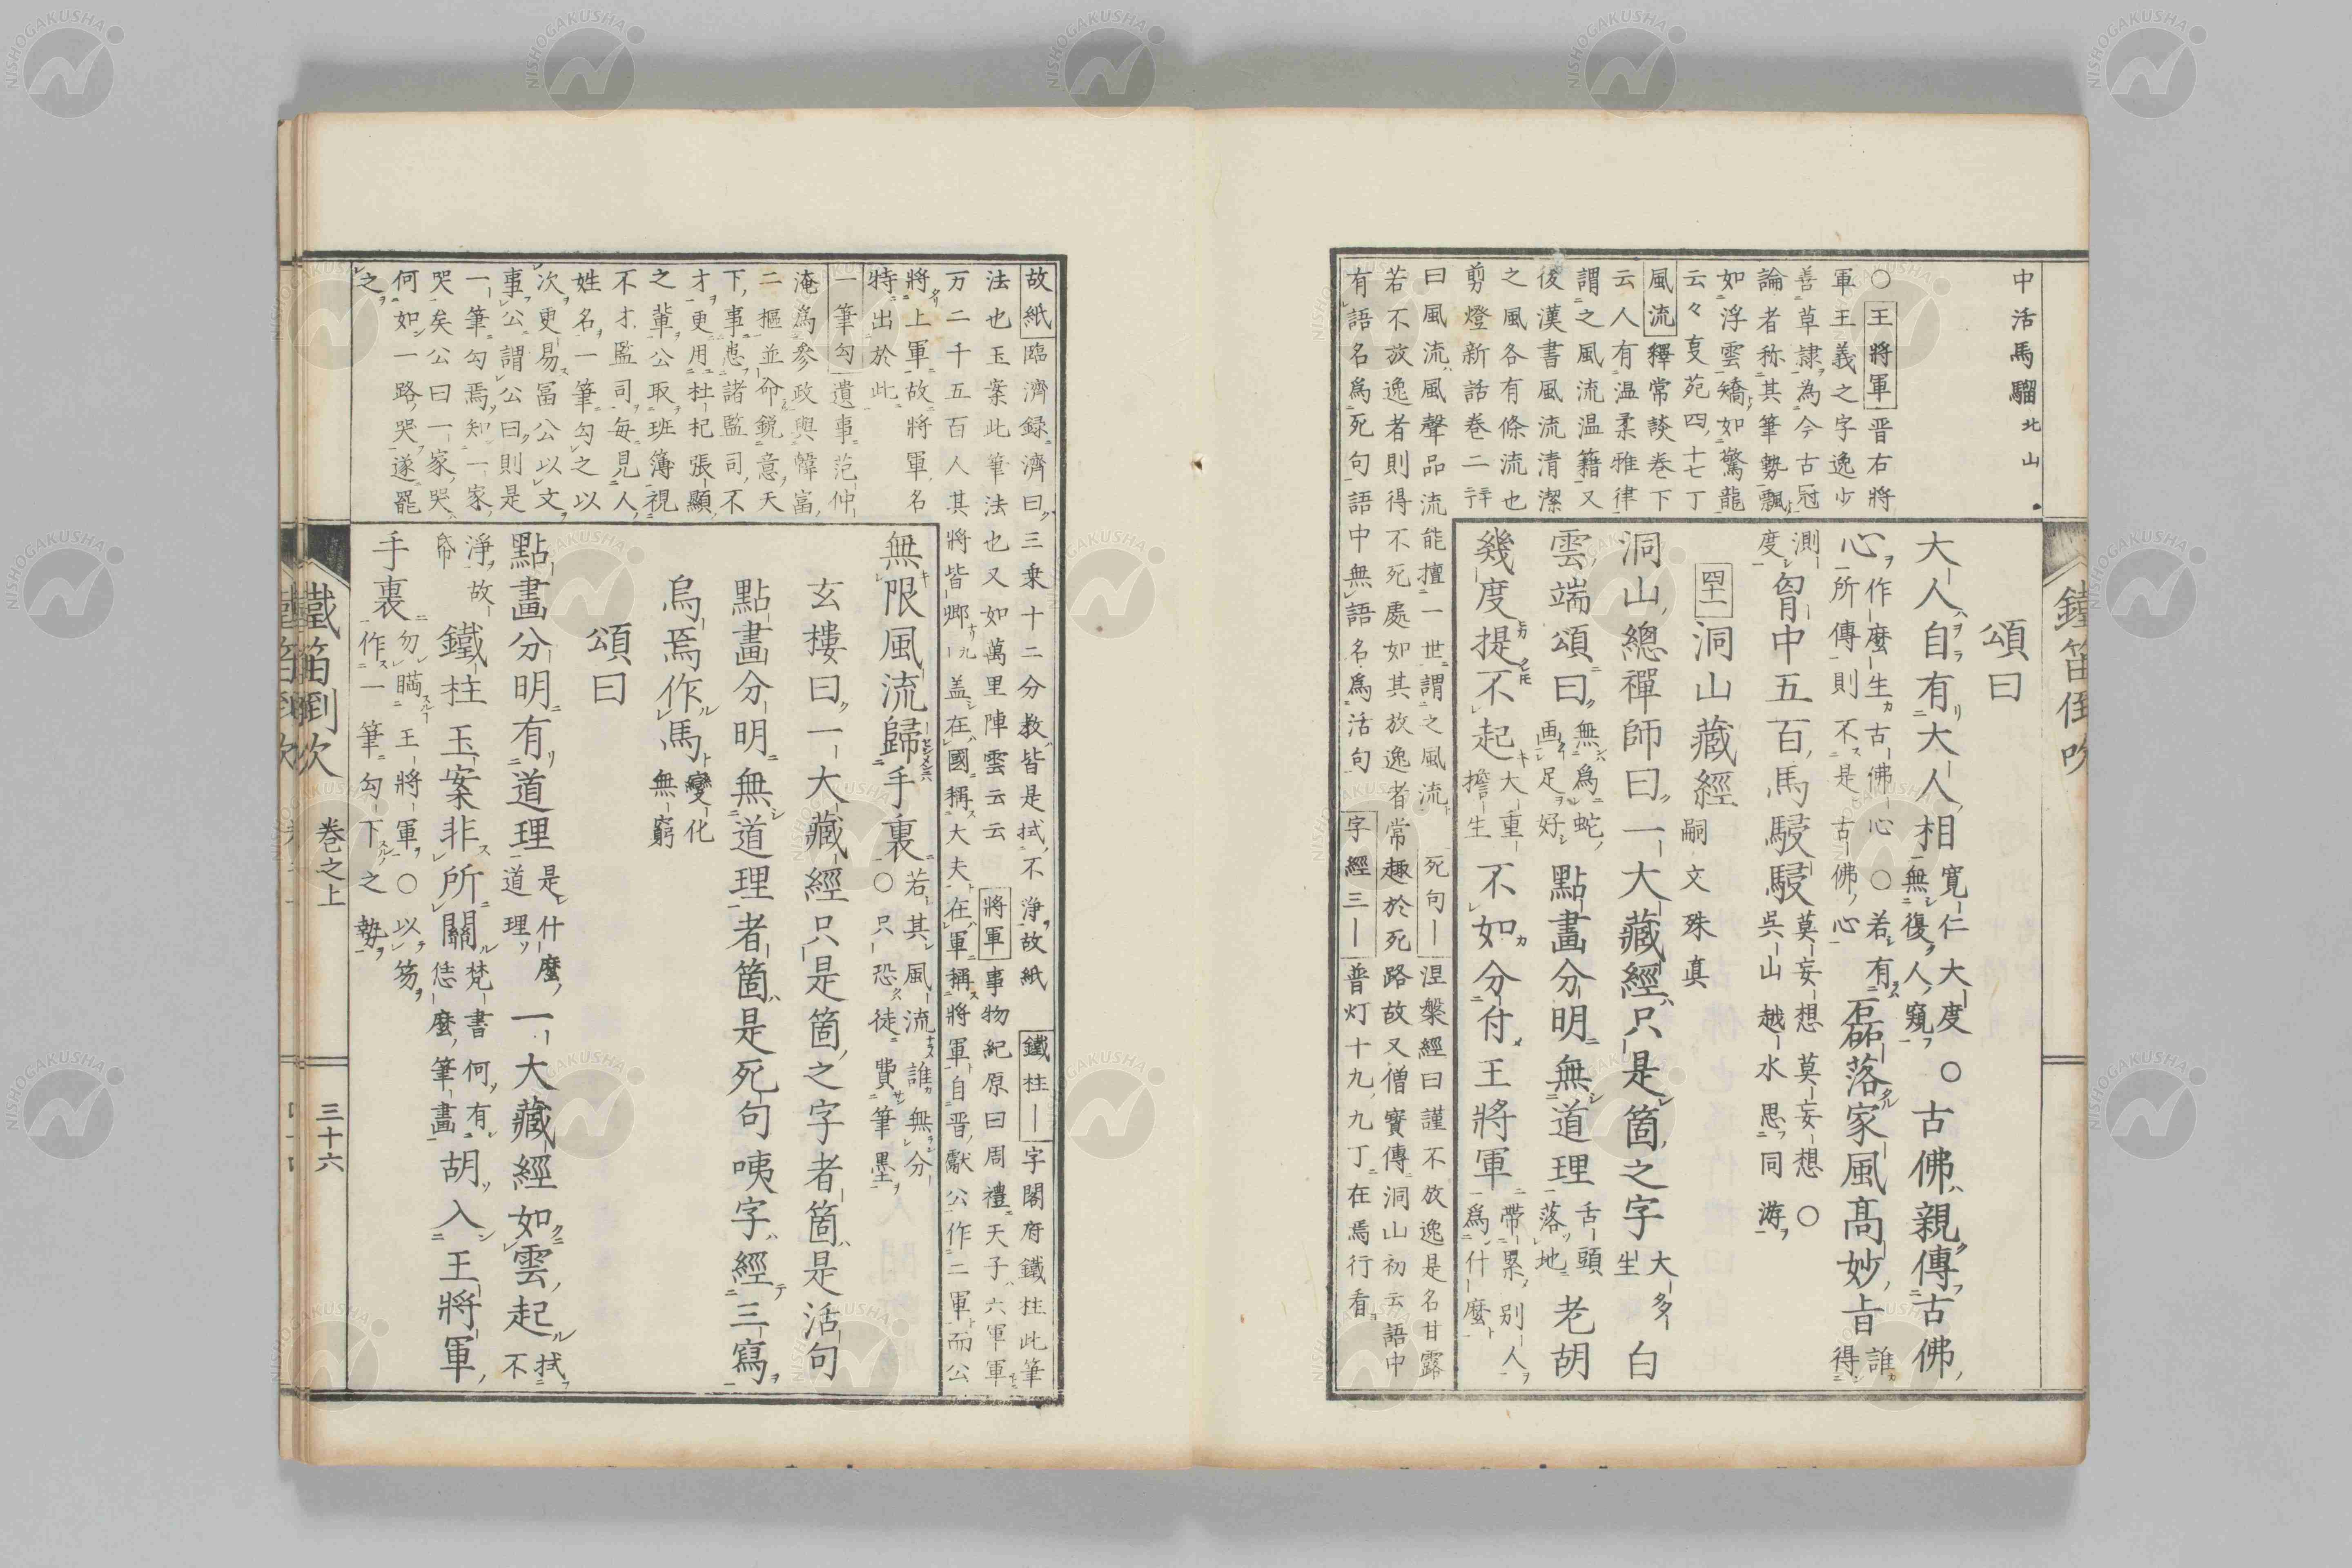 鐵笛倒吹
中活馬騮北山
○王將軍晋右將
軍王義之字逸少
善草隷為今古冠
論者称其筆勢飄
如浮雲矯如驚龍
云々叓苑四十七丁
風流釋常談巻下
云人有温柔雅律
謂之風流温籍又
後漢書風流清潔
之風各有條流也
剪燈新話巻二二十
曰風流風聲品流能擅一世謂之風流 死句｜涅槃經曰謹不放逸是名甘露
若不放逸者則得不死處如其放逸者常趣於死路故又僧寶傳洞山初云語中
有語名爲死句語中無語名爲活句 字經三｜普灯十九九丁在焉行看
頌曰
大人自有大人相寛仁大度無復人窺○古佛親傳古佛
心作麼生古佛心所傳則不是古佛心○若有磊落家風高妙旨誰得
測度胷中五百馬駸駸莫妄想莫妄想○呉山越水思同游
四十一洞山藏經嗣文殊真
洞山總禪師曰一大藏經只是箇之字大多生白
雲端頌曰無爲蛇画足好點畫分明無道理舌頭落地老胡
幾度提不起大重擔生不如分付王將軍帶累別人爲什麼
故紙臨濟録濟曰三乗十二分教皆是拭不浄故紙 鐵柱｜字閣府鐵柱此筆
法也玉案此筆法也又如萬里陣雲云云 將軍事物紀原曰周禮天子六軍軍
万二千五百人其將皆郷盖在國稱大夫在軍稱將軍自晋獻公作二軍而公
將上軍故將軍名
特出於此
一筆勾遺事范仲
淹爲參政與韓富
二樞並命鋭意天
下事患諸監司不
才更用杜杞張顯
之輩公取班簿視
不才監司毎見人
姓名一筆勾之以
次更易富公以文
事公謂公曰則是
一筆勾焉知一家
哭矣公曰一家哭
何如一路哭遂罷
之
無限風流歸手裏若其風流誰無分○只恐徒費筆墨
玄樓曰一大藏經只是箇之字者箇是活句
點畫分明無道理者箇是死句咦字經三寫
烏焉作馬變化無窮
頌曰
點畫分明有道理是什麼道理一大藏經如雲起拭不
淨故帋鐵柱玉案非所關梵書何有恁麼筆畫胡入王將軍
手裏勿瞞王將軍○以笏作一筆勾下之勢
鐵笛倒吹 巻之上 三十六